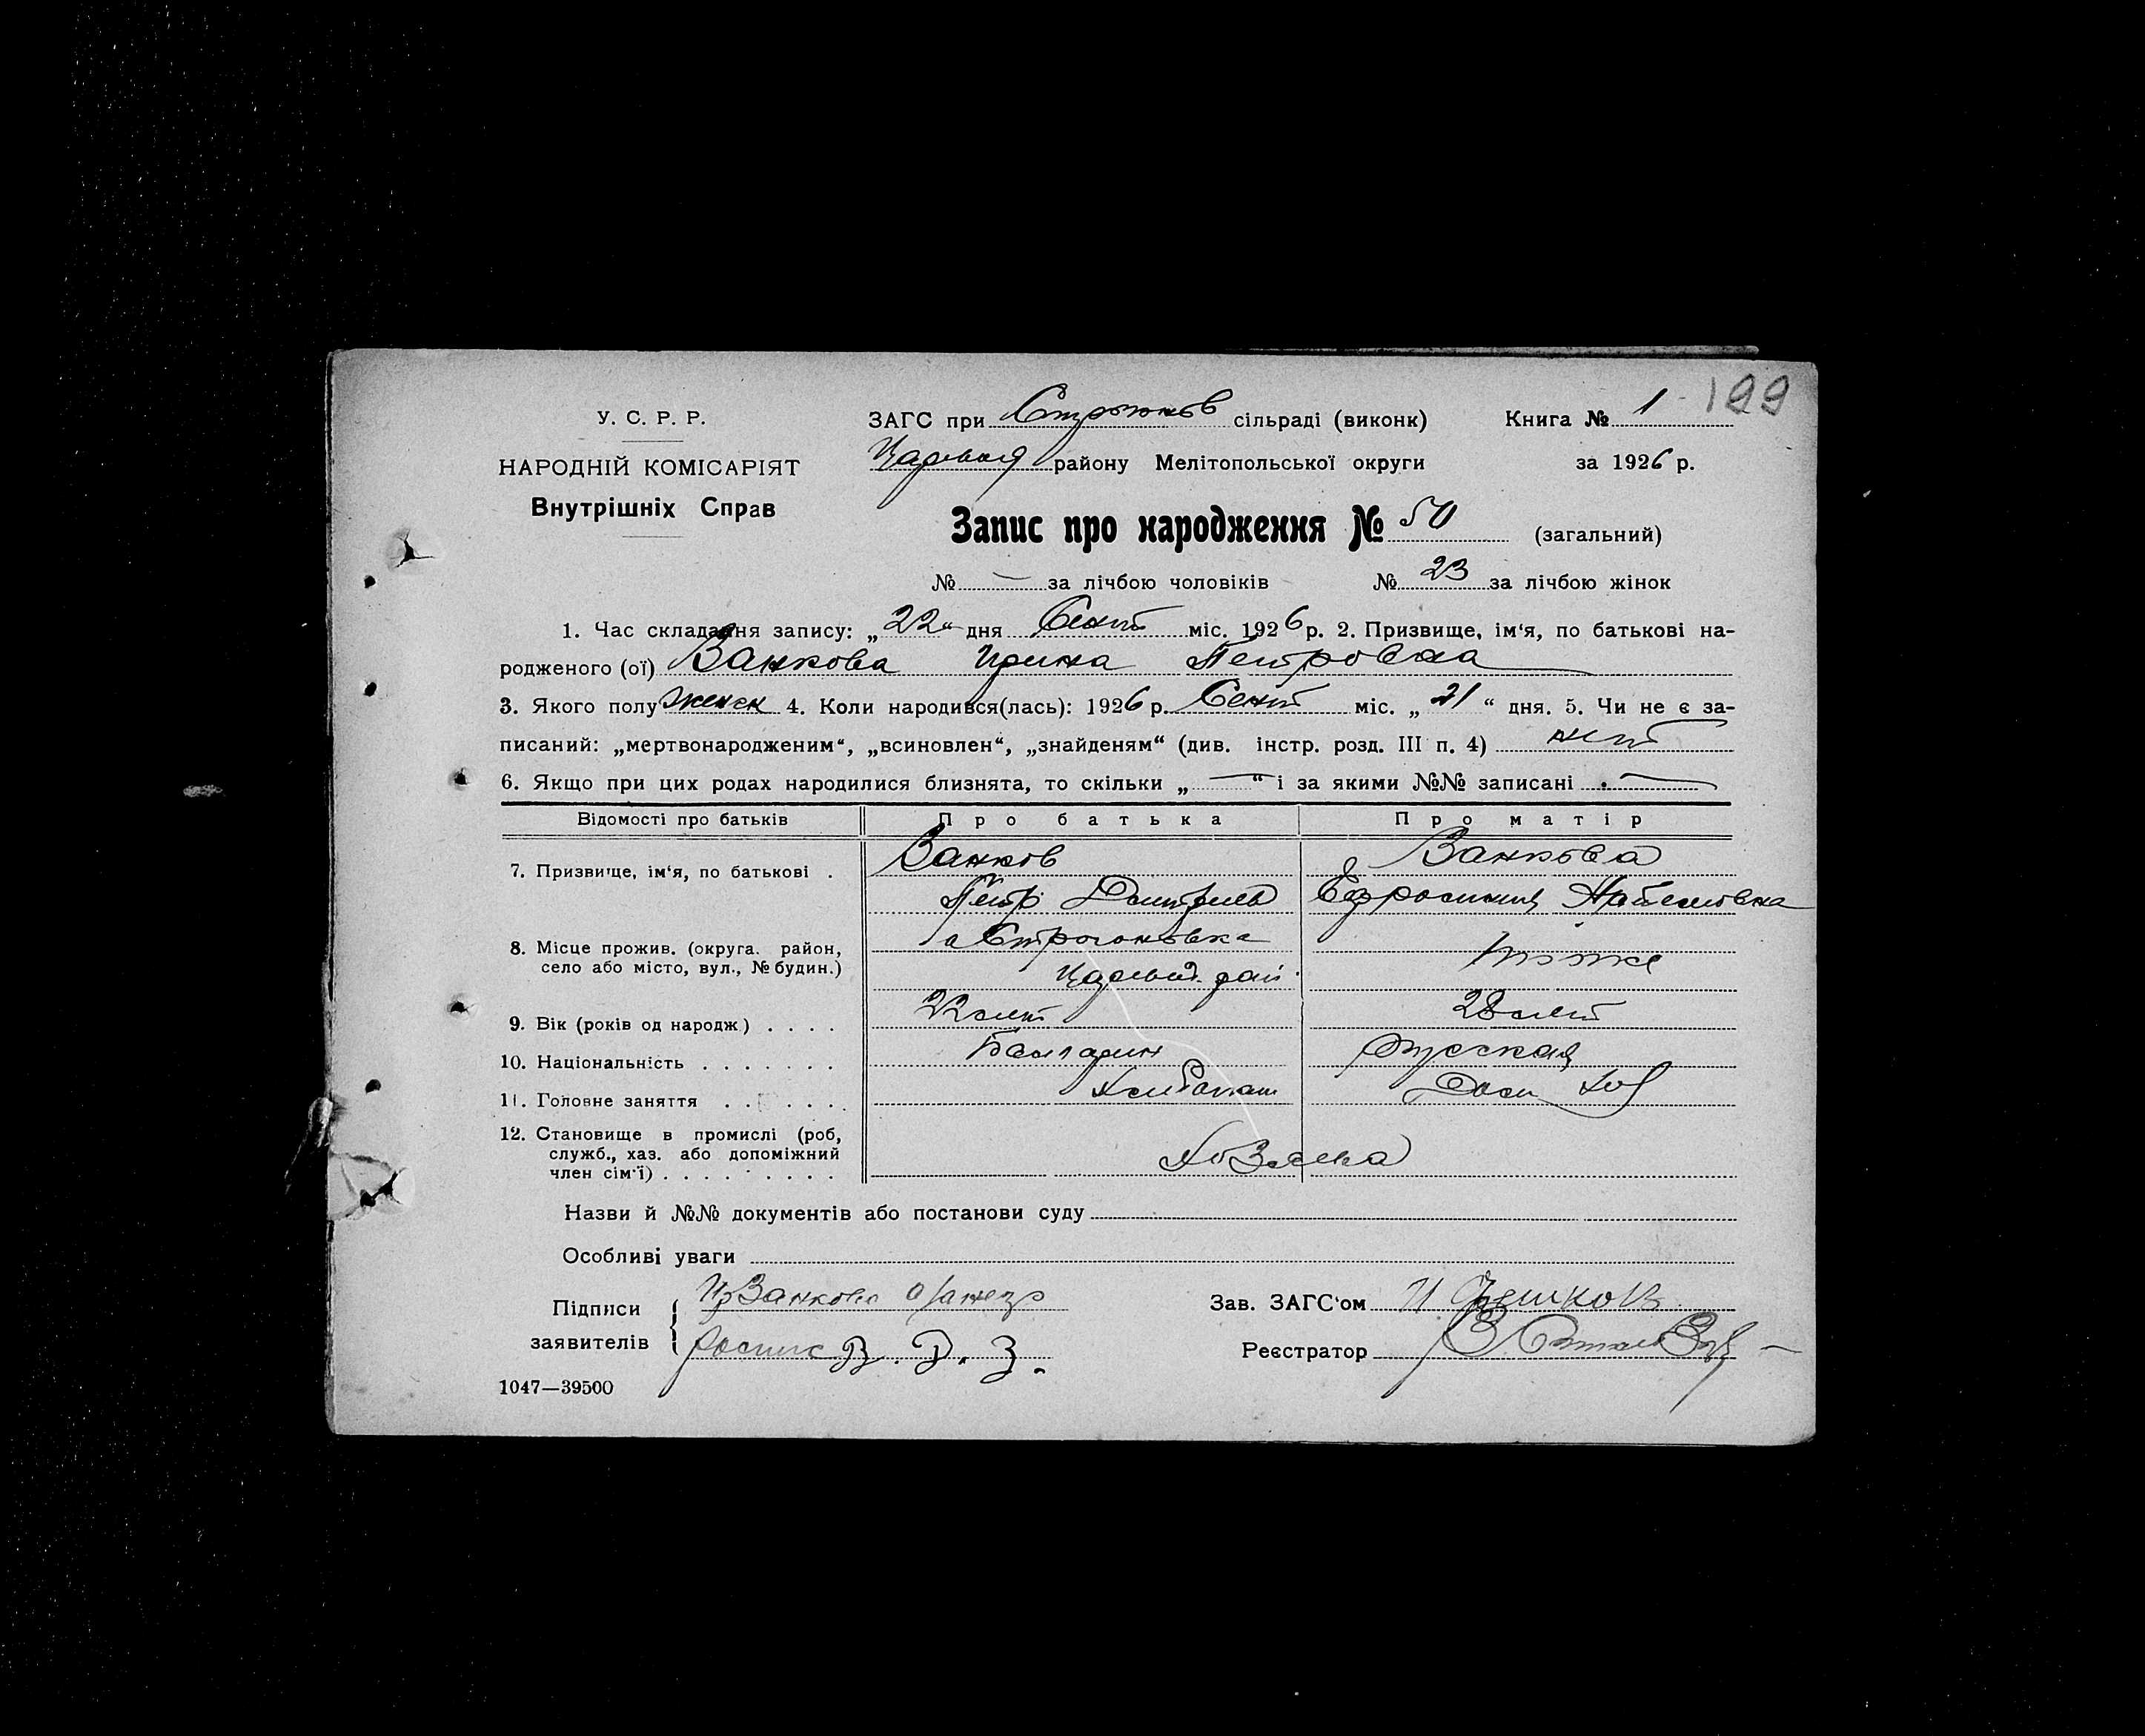 У. С. Р. Р.
НАРОДНІЙ КОМІСАРІЯТ
Внутрішніх Справ
ЗАГС при сільраді (виконк) Книга № 1 199
району Мелітопольської округи за 1926 р.
Запис про народження № 50 (загальний)
№ — за лічбою чоловіків № 23 за лічбою жінок
1. Час складання запису: „22“ дня Сент міс. 1926 р. 2. Призвище, ім‘я, по батькові на-
родженого (ої) Занкова Ирина Петровна
3. Якого полу женск 4. Коли народився(лась): 1926 р. Сент міс. „21“ дня. 5. Чи не є за-
писаний: „мертвонародженим“, „всиновлен“, „знайденям“ (див. інстр. розд. III п. 4) нет
6. Якщо при цих родах народилися близнята, то скільки „—“ і за якими №№ записані —
Відомості про батьків Про батька Про матір
7. Призвище, ім‘я, по батькові . Занков Занкова
Петр Дмитриев Ефросиния
8. Місце прожив. (округа. район, с Строгоновка тоже
село або місто, вул., № будин.) рай
9. Вік (років од народж) . . . . 22 лет 28 лет
10. Національність . . . . . . . Болгарин Русская
11. Головне заняття . . . . . . Хлебопаш Дом Хоз
12. Становище в промислі (роб,
служб., хаз. або допоміжний
член сім‘ї) . . . . . . . . Хозяева
Назви й №№ документів або постанови суду
Особливі уваги
Підписи Занкова Зав. ЗАГС‘ом
заявителів Роспис Реєстратор
1047—39500